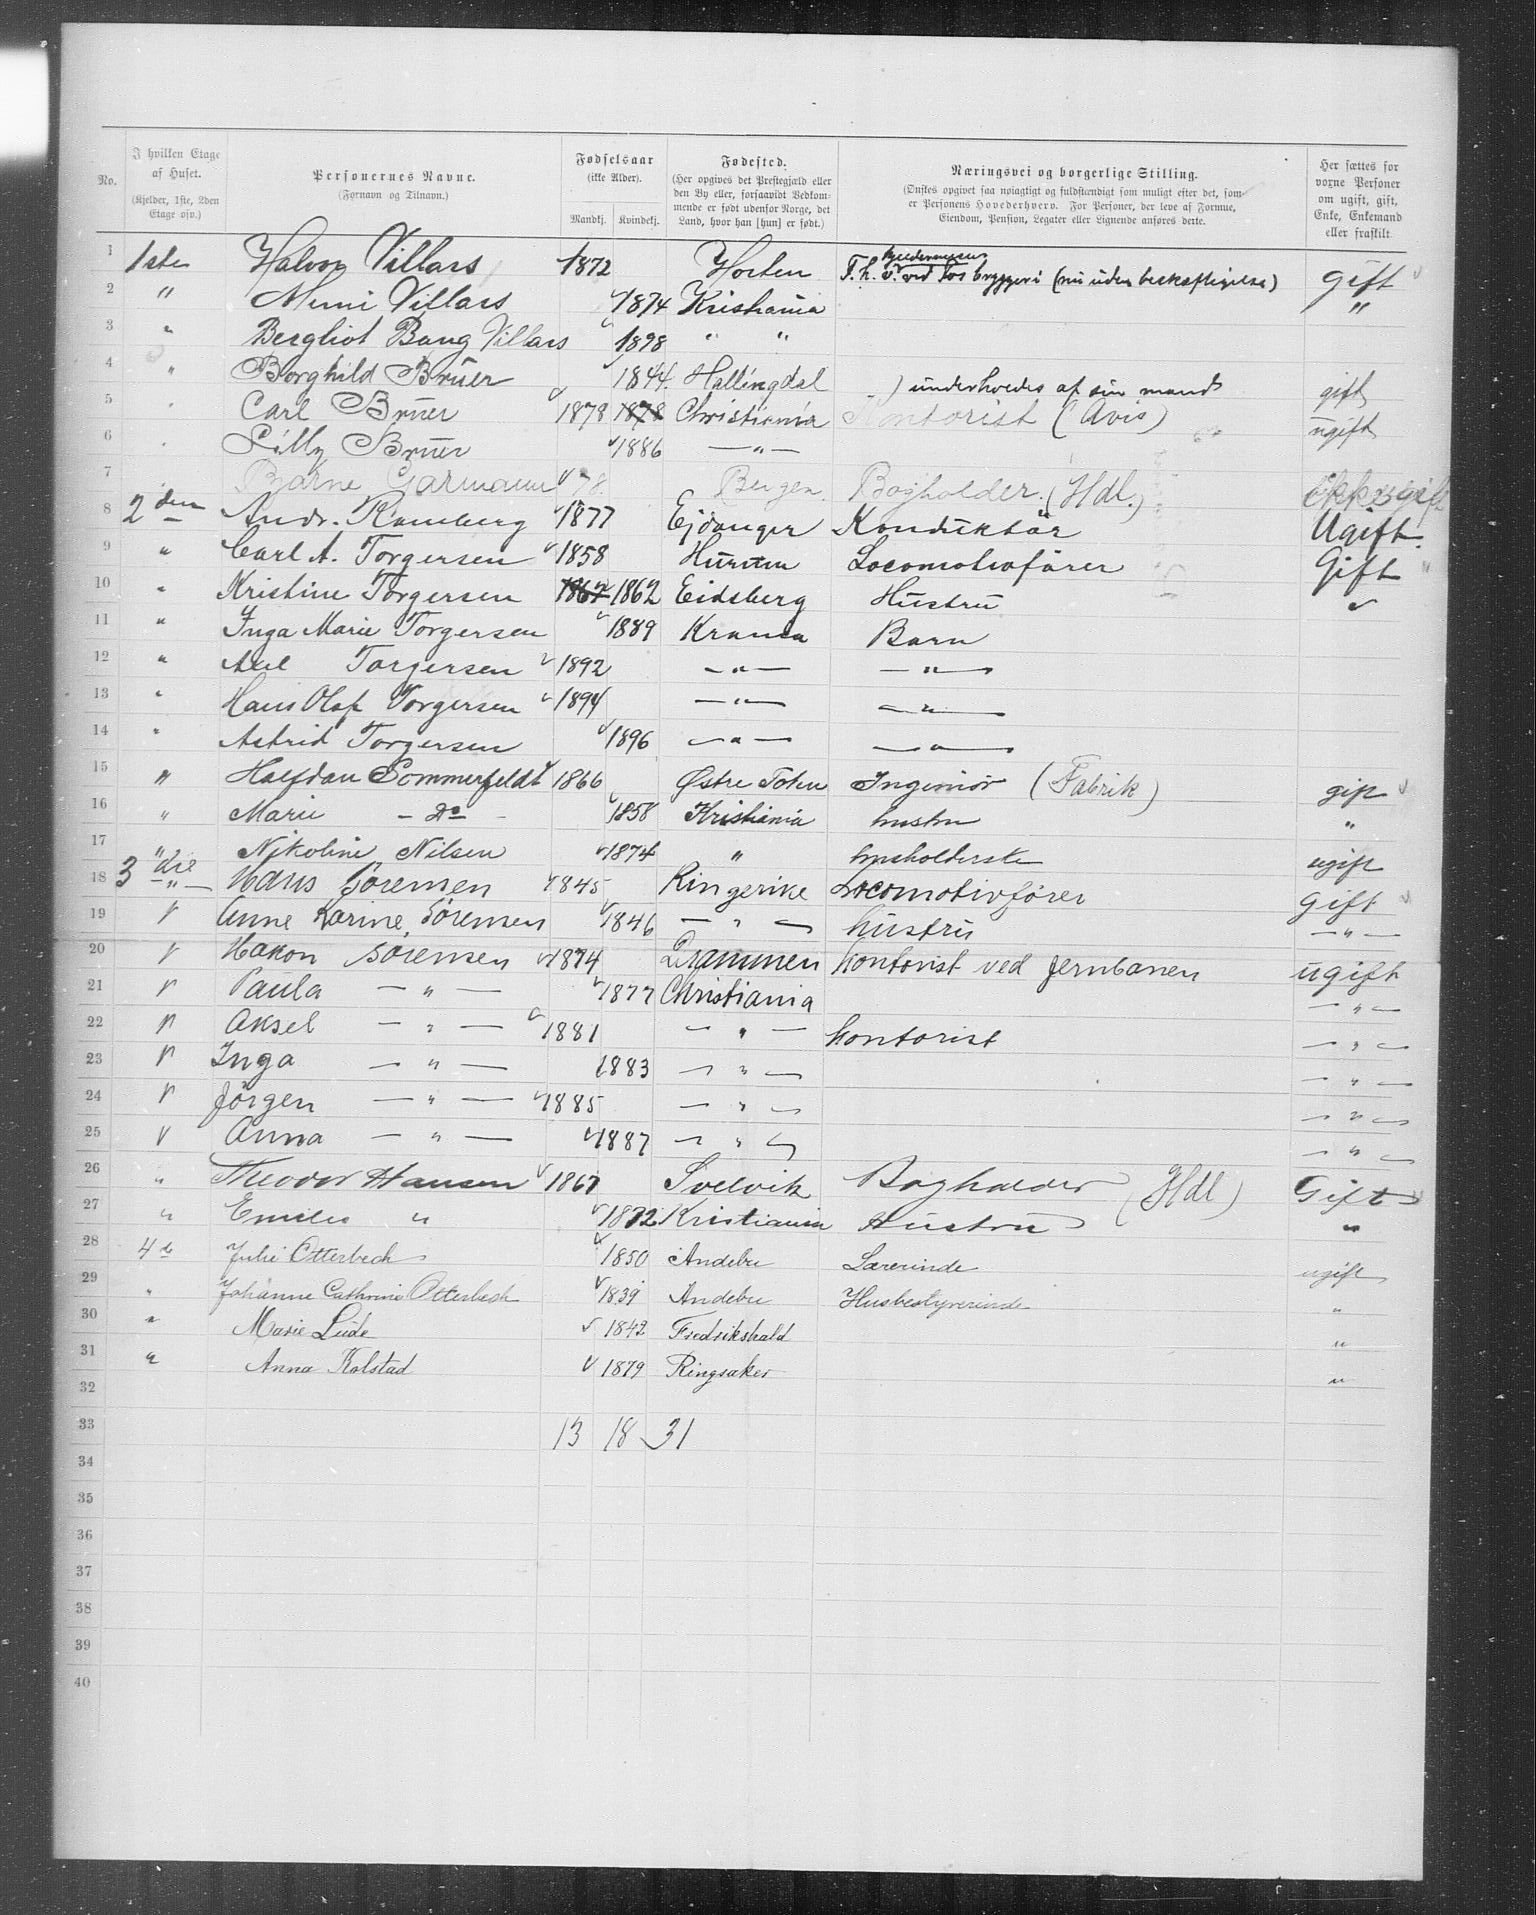 No. | I hvilken Etage af Huset. (Kjelder, 1ste, 2den Etage osv.) | Personernes Navne. (Fornavn og Tilnavn.) | Fødselsaar (ikke Alder). Mandkj. Kvindekj. | Fødested. (Her opgives det Prestegjæld eller den By eller, forsaavidt Vedkommende er født udenfor Norge, det Land, hvor han [hun] er født.) | Næringsvei og borgerlige Stilling. (Ønskes opgivet saa nøiagtigt og fuldstændigt som muligt efter det, som er Personens Hovederhverv. For Personer, der leve af Formue, Eiendom, Pension, Legater eller Lignende anføres dette.) | Her sættes for voxne Personer om ugift, gift, Enke, Enkemand eller fraskilt
1 1ste Halvor Villars 1872 Horten F. h. v. ved bryggeri (nu uden beskæftigelse) gift
2 " Mimi Villars 1874 Kristiania "
3 " Bergliot Bang Villars 1898 " "
4 " Borghild Brüer 1844 Hallingdal underholdes af sin mand gift
5 " Carl Brüer 1878 1878 Christiania Kontorist (Avis) ugift
6 " Lilly Brüer 1886 — " —
7 Bjarne Garmann 78 Bergen. Bogholder. (Hdl.)
8 2den Andr. Ramberg 1877 Kondüktör Ugift.
9 " Carl A. Torgersen 1858 Hurum Locomotivfører Gift
10 " Kristine Torgersen 1862 1862 Eidsberg Hüstrü "
11 " Inga Marie Torgersen 1889 Krania Barn
12 " Axel Torgersen 1892 — " — — " —
13 " Hans Olaf Torgersen 1894 — " — — " —
14 " Astrid Torgersen 1896 — " — — " —
15 " Halfdan Sommerfeldt 1866 Østre Toten Ingeniør (Fabrik) gift
16 " Marie — do — 1858 Kristiania hustru "
17 " Nikoline Nilsen 1874 " husholderske ugift
18 3die — " — Hans Sörensen 1845 Ringerike Locomotivförer gift
19 " Anne Karine Sörensen 1846 — " — hüstrü — " —
20 " Hakon Sörensen 1874 Drammen kontorist ved Jernbanen ügift
21 " Paula — " — 1877 Christiania — " —
22 " Aksel — " — 1881 — " — kontorist — " —
23 " Inga — " — 1883 — " — — " —
24 " Jörgen — " — 1885 — " — — " —
25 " Anna — " — 1887 — " — — " —
26 " Theodor Hansen 1867 Svelvik Bogholder (Hdl) Gift
27 " Emilie " 1872 Kristiania Hüstrü "
28 4de Julie Otterbech 1850 Andebu Lærerinde ugift
29 " Johanne Cathrine Otterbech 1839 Andebu Husbestyrerinde "
30 " Marie Lüde 1842 Fredrikshald "
31 " Anna Kolstad 1879 Ringsaker "
32
33 13 18 31
34
35
36
37
38
39
40